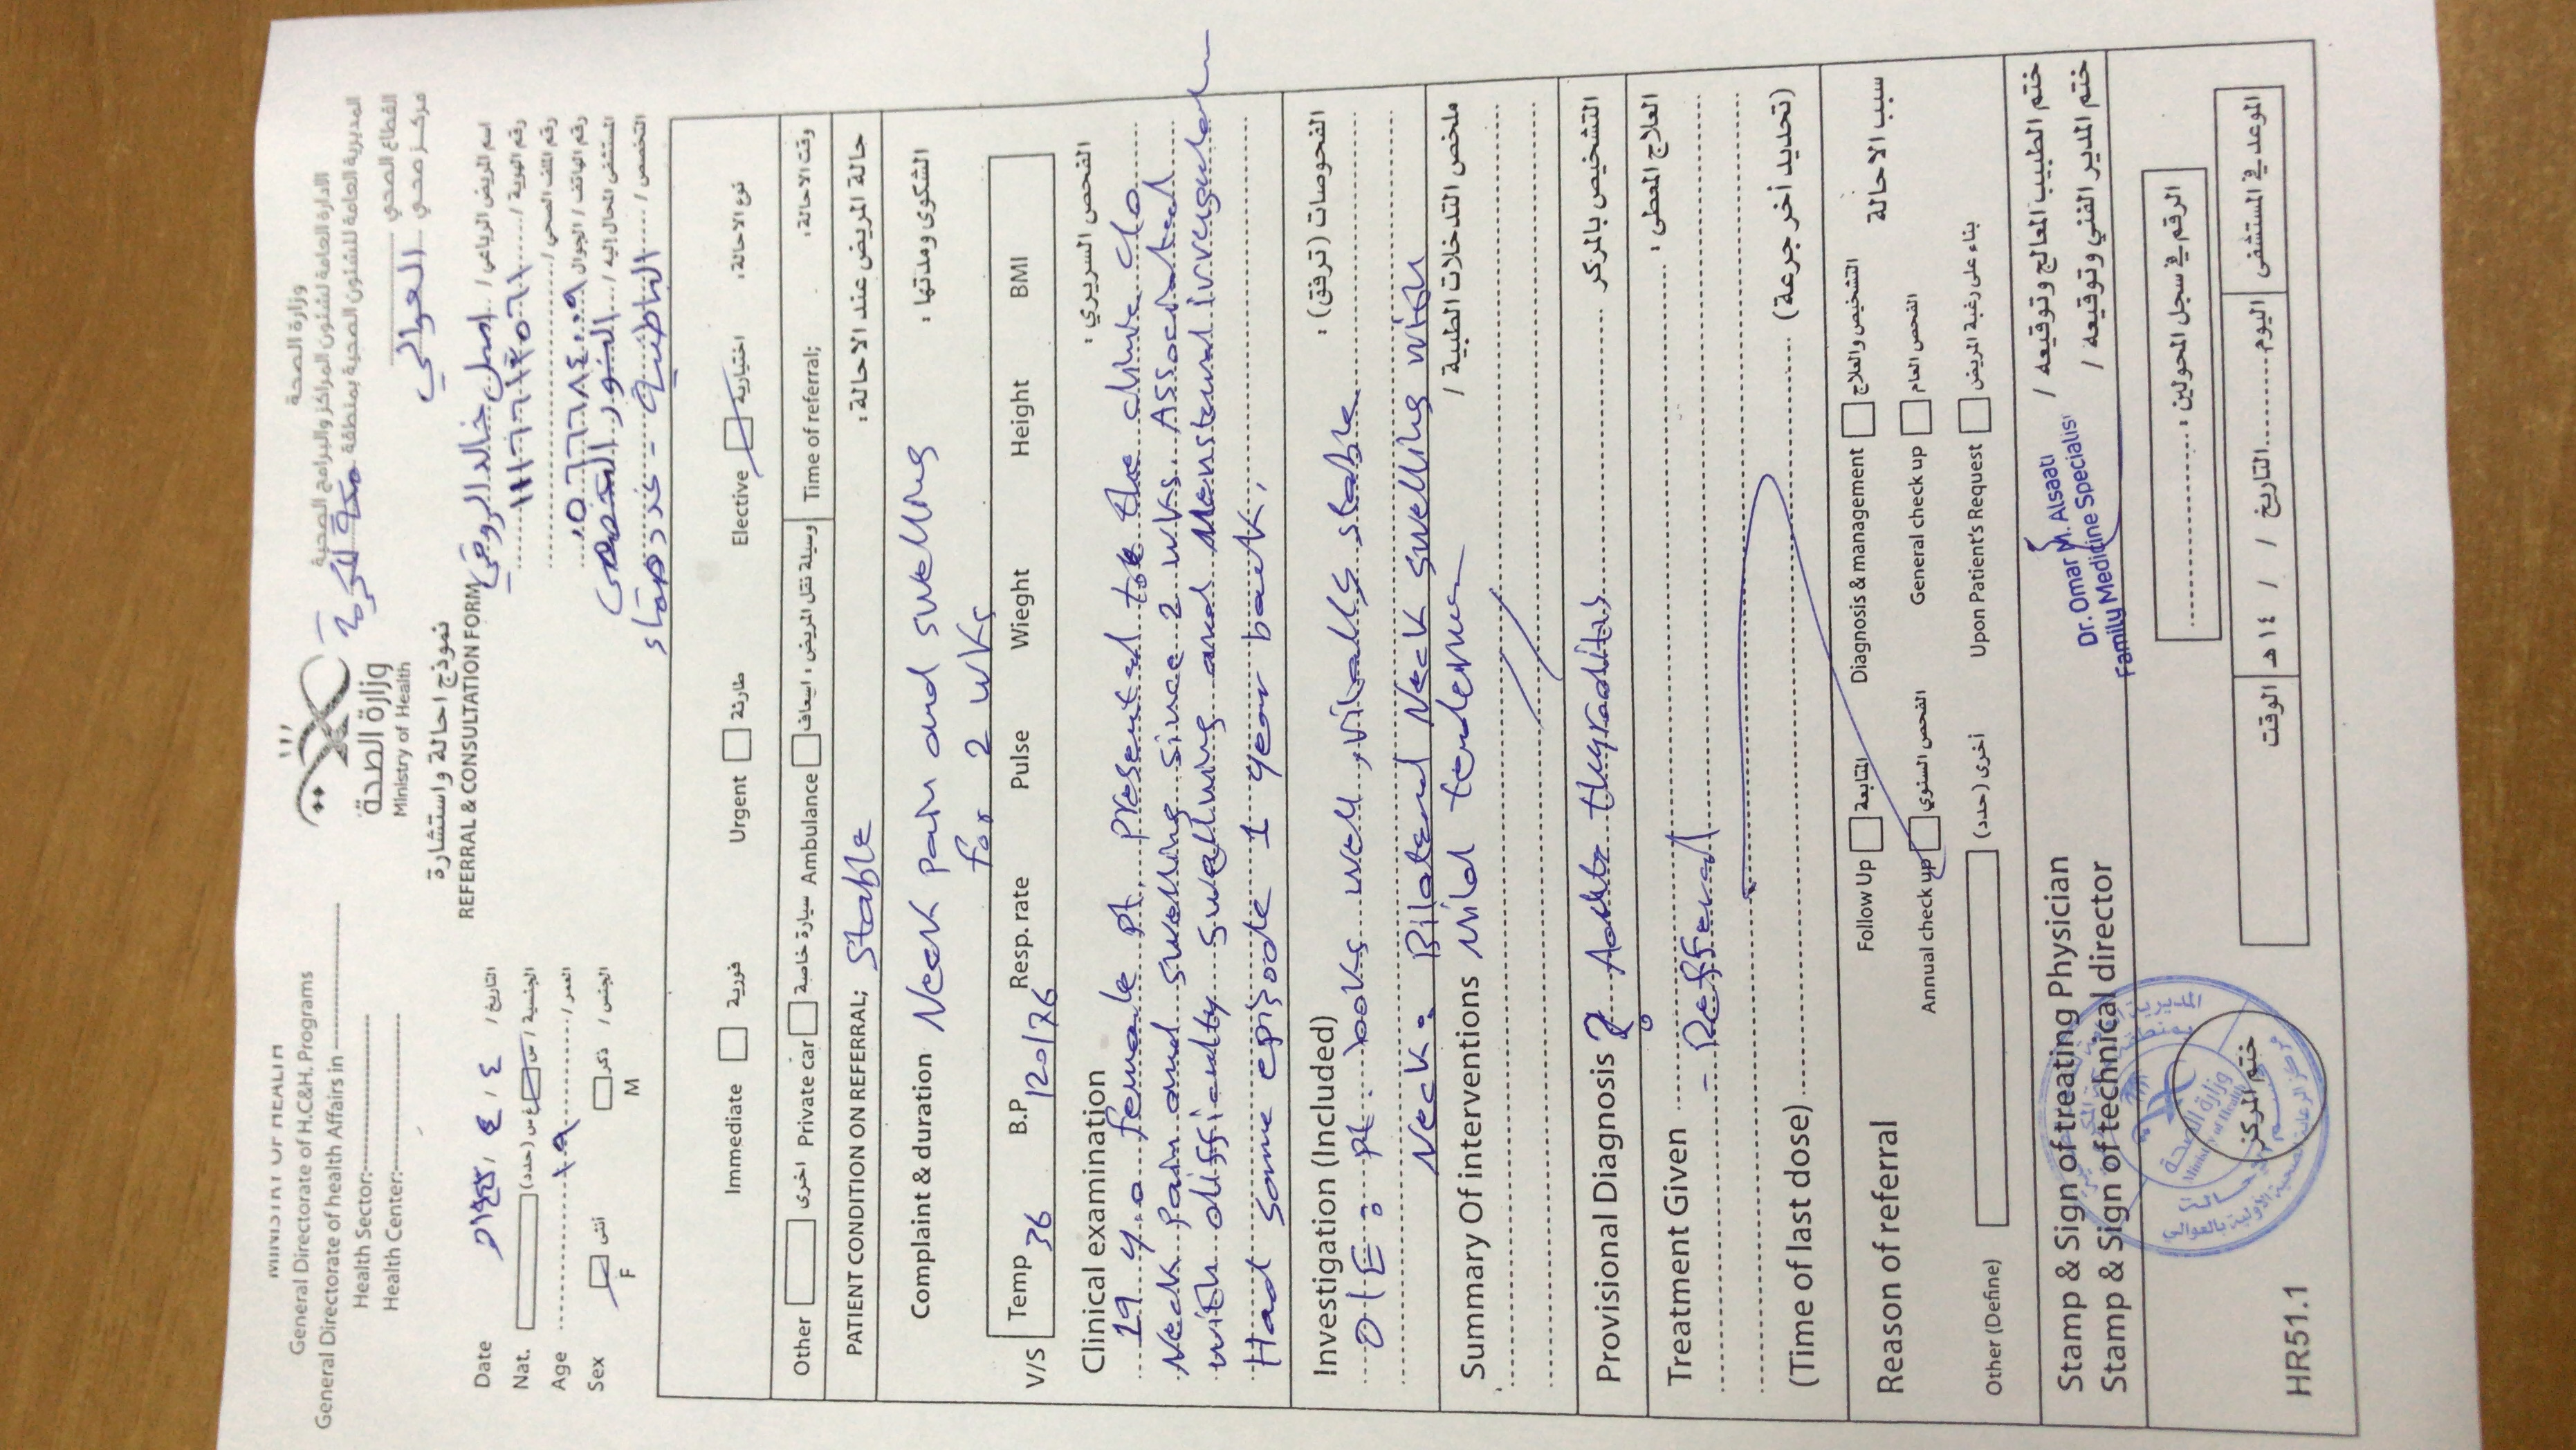 MINISTRY OF HEALTH
General Directorate of H.C&H. Programs
General Directorate of health Affairs in
Health Sector:
Health Center:
وزارة الصحة
Ministry of Health
نموذج احالة واستشارة
REFERRAL & CONSULTATION FORM
وزارة الصحة
الادارة العامة لشئون المراكز والبرامج الصحية
المديرية العامة للشئون الصحية بمنطقة مكة المكرمة
القطاع الصحي
مركز صحي العوالي
Date التاريخ / ٤ / ٤ /
Nat. (حدد) غ س س / الجنسية
Age العمر / ١٩
Sex أنثى ذكر / الجنس
F M
اسم المريض الرباعي / خالد الروقي
رقم الهوية /
رقم الملف الصحي /
رقم الهاتف / الجوال ٠٥٦٦٦٨٤٠٠٩
المستشفى المحال إليه / النور التخصصي
التخصص / الباطنية - غدد صماء
Immediate فورية Urgent طارئة Elective اختيارية نوع الاحالة :
Other اخرى Private car سيارة خاصة Ambulance وسيلة نقل المريض : اسعاف Time of referral; وقت الاحالة :
PATIENT CONDITION ON REFERRAL; Stable حالة المريض عند الاحالة :
Complaint & duration Neck pain and swelling الشكوى ومدتها :
for 2 wks
V/S Temp 36 B.P 120/76 Resp. rate Pulse Wieght Height BMI
Clinical examination الفحص السريري :
19 y.o female pt. presented to the clinic c/o
Neck pain and swelling since 2 wks. Associated
with difficulty swallwing and Menstrual irregular
Had same episode 1 year back.
Investigation (Included) الفحوصات (ترفق) :
O/E: pt. looks well, vitally stable
Neck: Bilateral Neck swelling with
Summary Of interventions mild tenderness ملخص التدخلات الطبية /
Provisional Diagnosis ? Acute thyroditis التشخيص بالمركز
Treatment Given العلاج المعطى :
- Refferal
(Time of last dose) (تحديد أخر جرعة)
Reason of referral Follow Up المتابعة Diagnosis & management التشخيص والعلاج سبب الاحالة
Annual check up الفحص السنوي General check up الفحص العام
Other (Define) أخرى (حدد) Upon Patient's Request بناء على رغبة المريض
Stamp & Sign of treating Physician Dr. Omar M. Alsaati ختم الطبيب المعالج وتوقيعه /
Stamp & Sign of technical director Family Medicine Specialist ختم المدير الفني وتوقيعه /
وزارة الصحة
Ministry of Health
ختم المركز
الرقم في سجل المحولين :
الموعد في المستشفى اليوم التاريخ / / ١٤ هـ الوقت
HR51.1